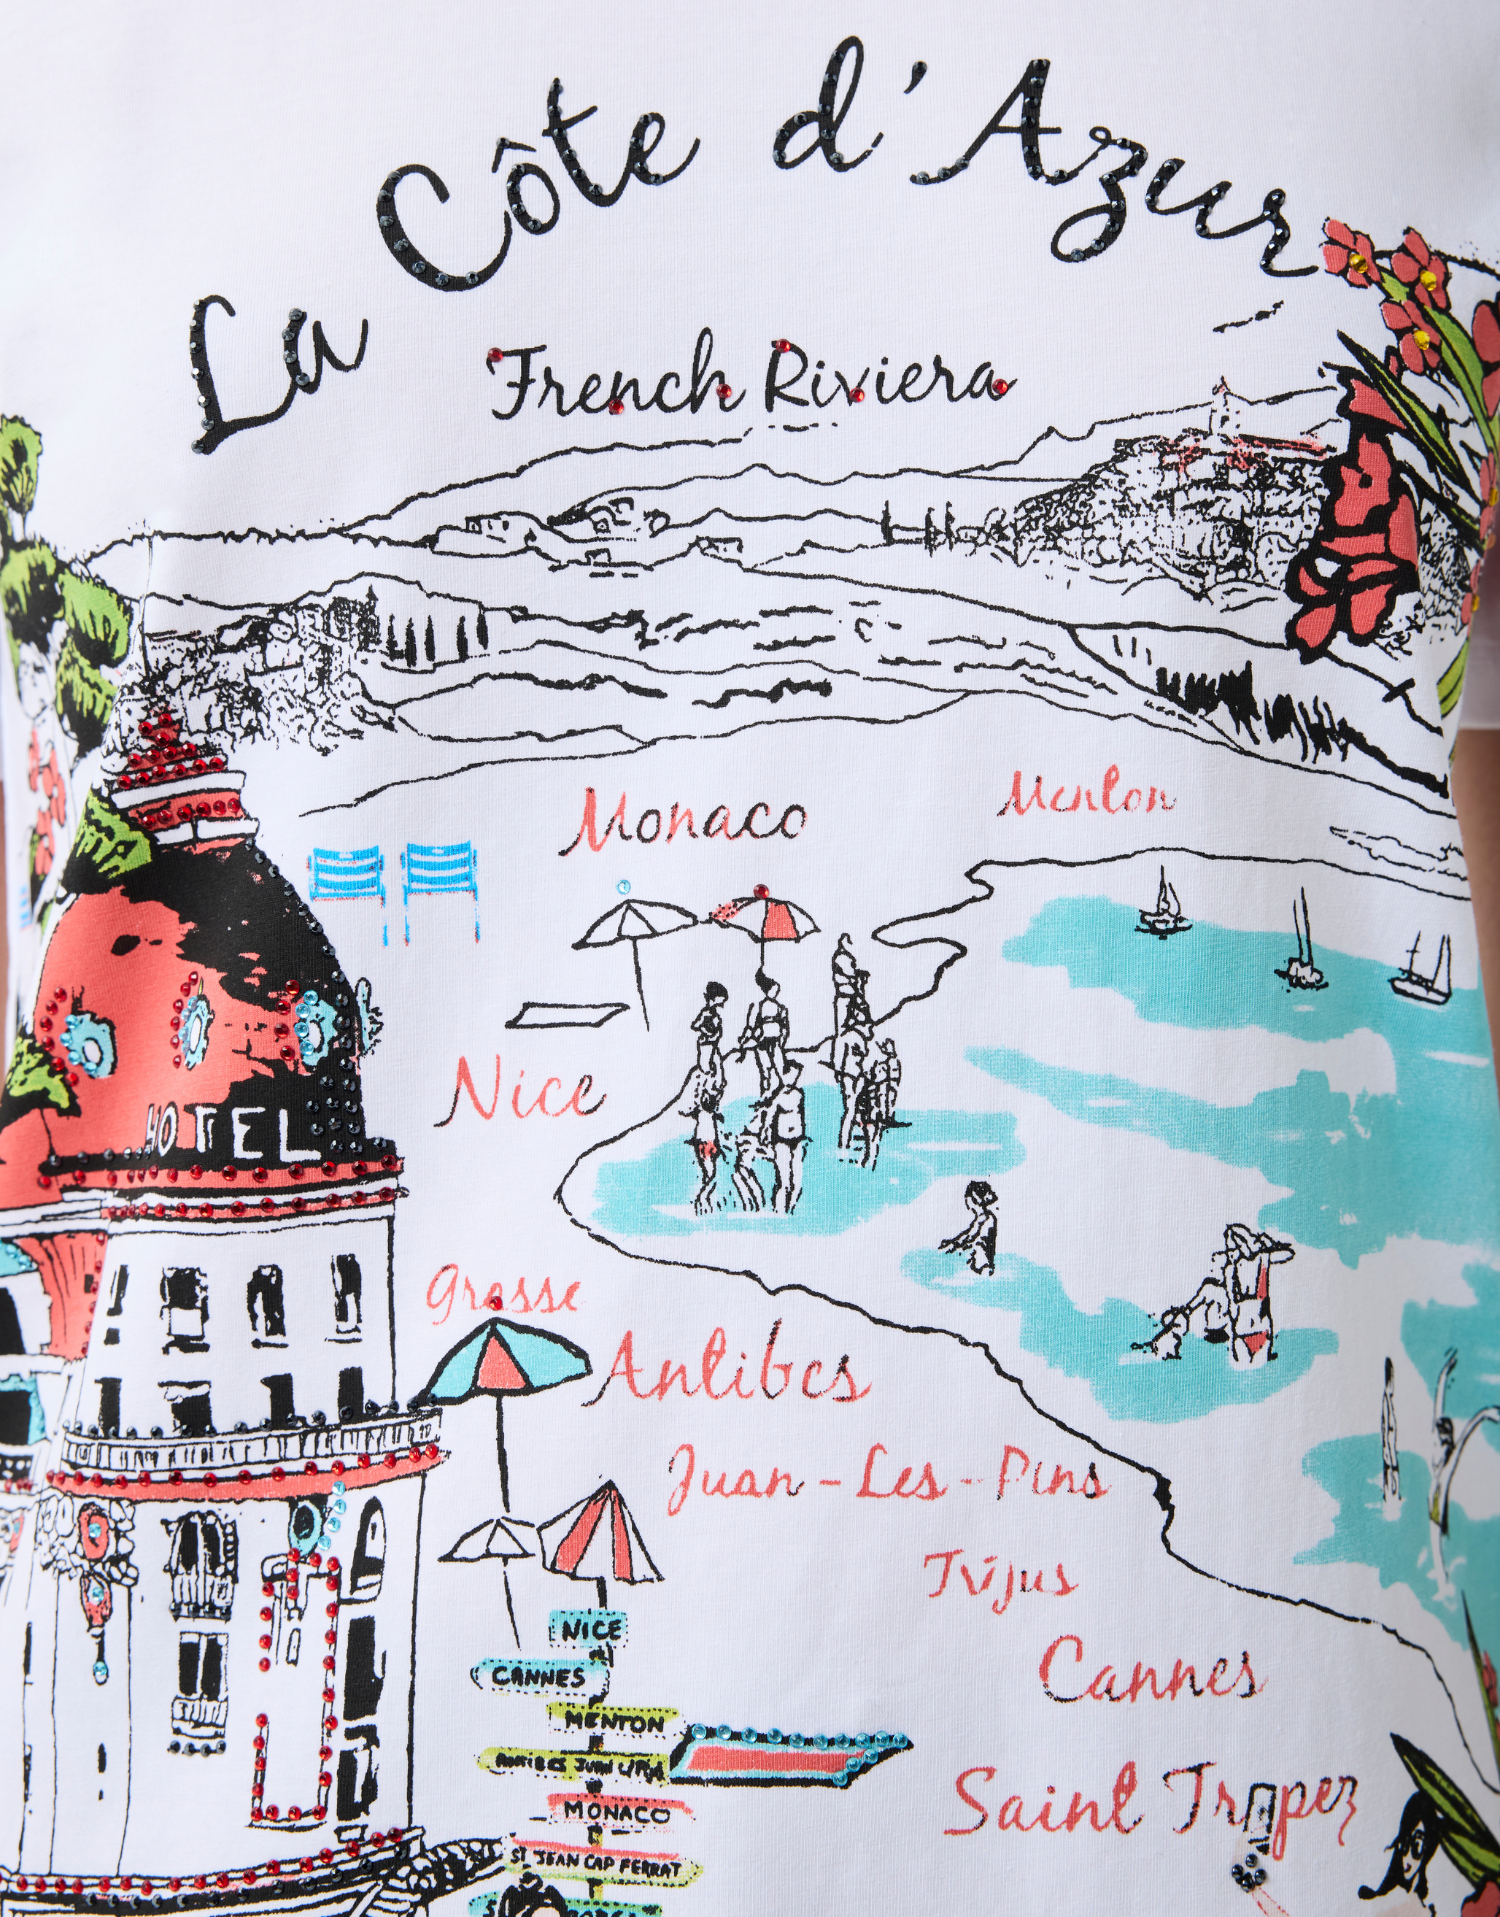 La Côte d'Azur
French Riviera
Monaco
Menton
Nice
HOTEL
Grasse
Antibes
Juan-Les-Pins
Trijus
Cannes
Saint Tropez
NICE
CANNES
MENTON
ANTIBES JUAN L/PINS
MONACO
ST JEAN CAP FERRAT